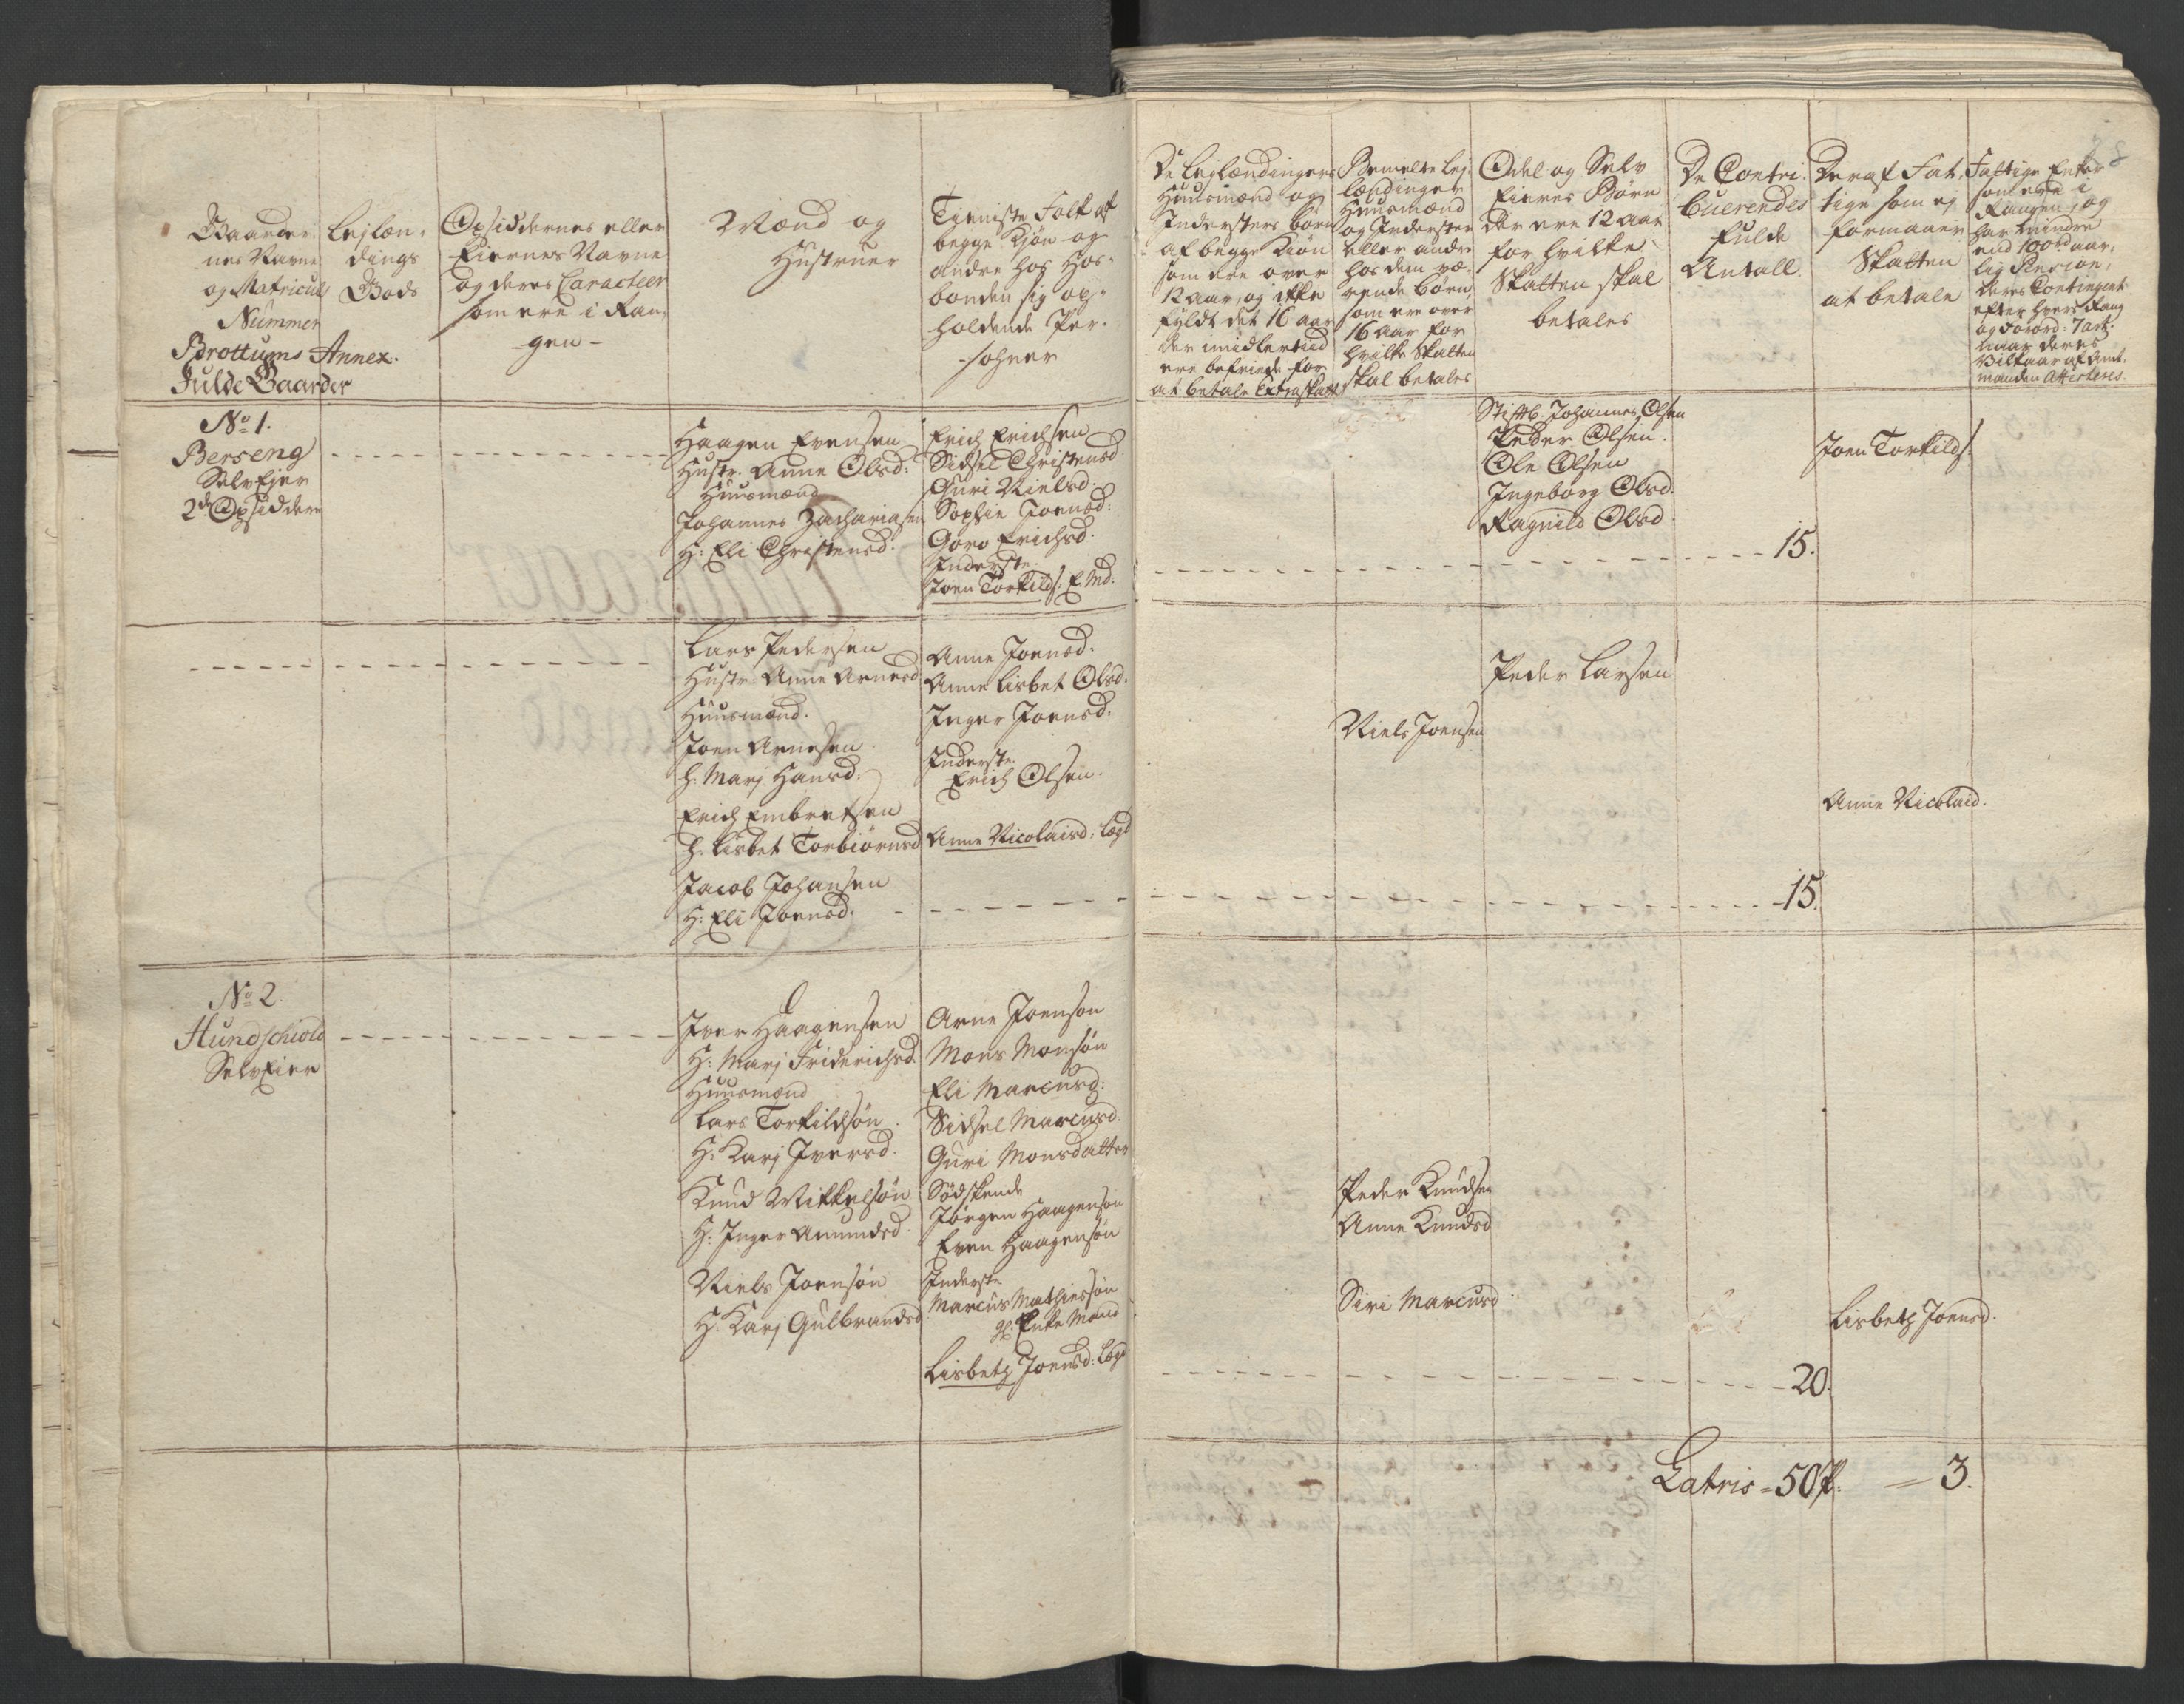 Gaarder-
nes Navne
og Matricul
Nummer
Brottums Annex.
Fulde Gaarder
Lejlæn-
dings
Gods
Opsiddernes eller
Eiernes Navne
og deres Caracteer
som ere i Ran-
gen
Mænd og
Hustruer
Tieniste Folk af
begge Kiøn og
andre hos Hos-
bonden sig op-
holdende Per-
sohner
De Lejlændingers
Huusmænd og
Indersters børn
af begge Kiøn
som ere over
12 aar, og ikke
fyldt det 16 aar
der imidlertiid
ere befriede for
at betale Extraskatt
Bemelte Lej-
lændinger
Huusmænd
og Inderster
eller andre
hos dem væ-
rende børn,
som ere over
16 aar for
hvilke Skatten
skal betales
Odel og Selv
Eieres Børn
der ere 12 aar
for hvilke
Skatten skal
betales
De Contri-
buerendes
fulde
Antall.
Deraf Fat-
tige som ej
formaaer
Skatten
at betale
Fattige Enker
som ere i
Rangen, og
har mindre
end 100rd aar-
lig Pension,
deres Contingent
efter hvers Rang
og Forord: 7 art:
naar deres
Vilkaar af Amt-
manden Attesteres.
No 1.
Berseng
Selv Ejer
2de Opsiddere
Haagen Evensen
Hustr. Anne Olsd:
Huusmænd
Johannes Zachariasen
H: Eli Christensd.
Erich Erichsen
Sidsel Christensd.
Guri Nielsd.
Sophie Joensd:
Goro Erichsd.
Inderste.
Joen Torkilds: E. Md:
Stiftb. Johannes Olsen
Peder Olsen.
Ole Olsen
Ingeborg Olsd.
Ragnild Olsd.
15.
Joen Torkilds:
Lars Pedersen
Hustr: Anne Arnesd
Huusmænd.
Joen Arnesen
H. Marj Hansd.
Erich Embretsen
H. Lisbet Torbiørnsd
Jacob Johansen
H: Eli Joensd.
Anne Joensd.
Anne Lisbet Olsd.
Inger Joensd.
Inderste.
Erich Olsen.
Anne Nicolaisd: Lægd
Niels Joensen
Peder Larsen
15.
Anne Nicolaid.
No 2.
Hundschiold
Selv Eier
Iver Haagensen
H: Marj Friderichsd.
Huusmænd
Lars Torkildsøn
H: Karj Iversd.
Knud Mikkelsøn
H: Inger Amundsd.
Niels Joensøn
H. Karj Gulbrandsd
Arne Joensøn
Mons Monsøn
Eli Marcusd:
Sidsel Marcusd.
Guri Monsdatter
Sødskende
Jørgen Haagensøn
Even Haagensøn
Inderste
Marcus Mathiessøn
Enke Mand
Lisbeth Joensd: Lægd
Peder Knudsen
Anne Knudsd
Siri Marcusd.
20.
Lisbeth Joensd.
Latris = 50 P. = 3.